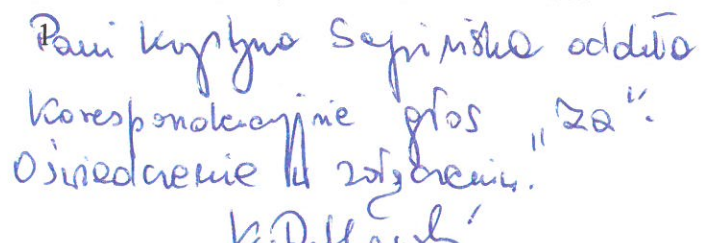 Pani Krystyna oddała
korespondencyjnie głos „za".
Oświadczenie w załączeniu.
K.